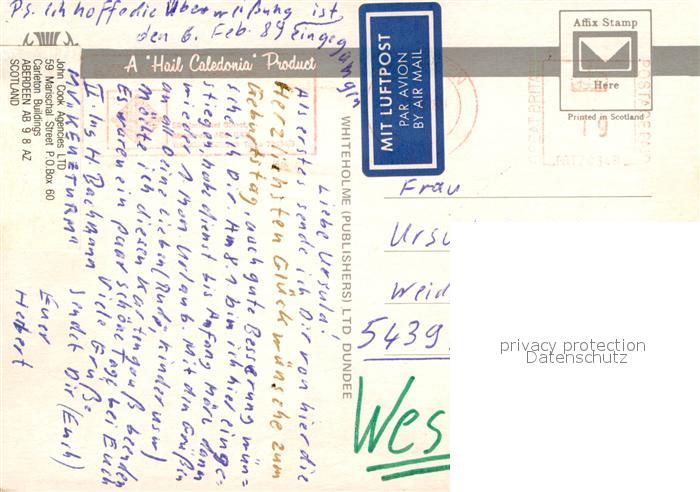 Ps. ich hoffe die Überweißung ist
den 6. Feb. 89 Eingegangen
A "Hail Caledonia" Product
John Cook Agencies LTD
59 Marischal Street P.O.Box 60
Carleton Buildings
ABERDEEN AB 9 8 AZ
SCOTLAND
Liebe Ursula!
Als erstes sende ich Dir von hier die
Herzlichsten Glückwünsche zum
Geburtstag, auch gute Besserung wün=
sche ich Dir. Am 8.1 bin ich hier einge=
stiegen habe dienst bis Anfang März dann
wieder 1 Mon Urlaub. Mit den Grüßen
an all Deine Lieben (Rudi, Kinder usw)
möchte ich diesen Kartengruß beenden
Es waren ein paar schöne Tage bei Euch
Viele Grüße
sendet Dir (Euch)
Euer
Herbert
II. Ing H. Bachmann
M.V. "KENETURM"
WHITEHOLME (PUBLISHERS) LTD DUNDEE
MIT LUFTPOST
PAR AVION
BY AIR MAIL
Affix Stamp
Here
Printed in Scotland
GREAT BRITAIN
POSTAGE PAID
19
Frau
Ursu
Weid
5439
Wes
privacy protection
Datenschutz